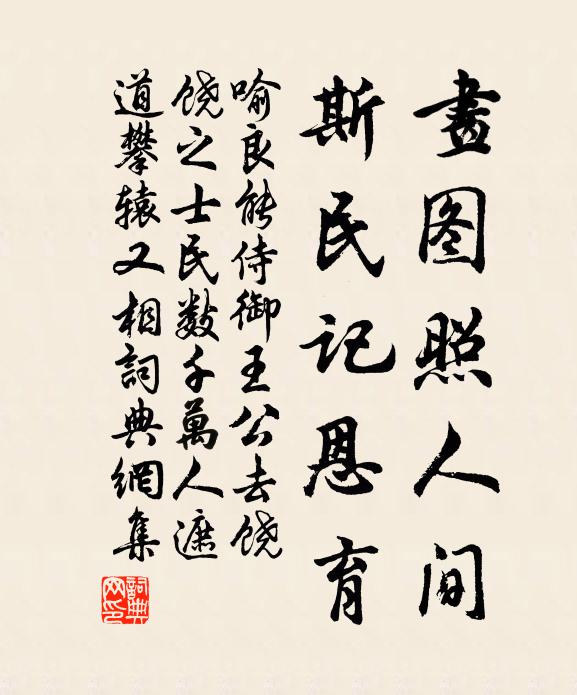 畫图照人间
斯民记恩育
喻良能侍御王公去饶
饶之士民数千萬人遮
道攀辕又相詞典網集
詞典网印